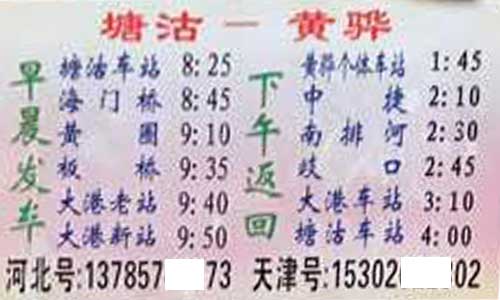 塘沽 — 黄骅
早晨发车
塘沽车站 8:25
海门桥 8:45
黄圈 9:10
板桥 9:35
大港老站 9:40
大港新站 9:50
下午返回
黄骅个体车站 1:45
中捷 2:10
南排河 2:30
歧口 2:45
大港车站 3:10
塘沽车站 4:00
河北号:137857 73 天津号:15302 02